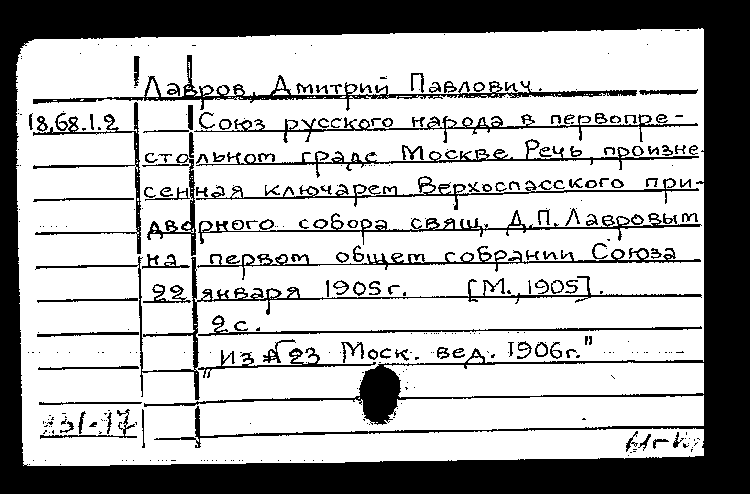 Лавров, Дмитрий Павлович.
18,68.1.2 Союз русского народа в первопре-
стольном граде Москве. Речь, произне-
сенная ключарем Верхоспасского при-
дворного собора свящ. Д.П. Лавровым
на первом общем собрании Союза
22 января 1905г. [М., 1905].
2 с.
"Из № 23 Моск. вед. 1906г."
131-97